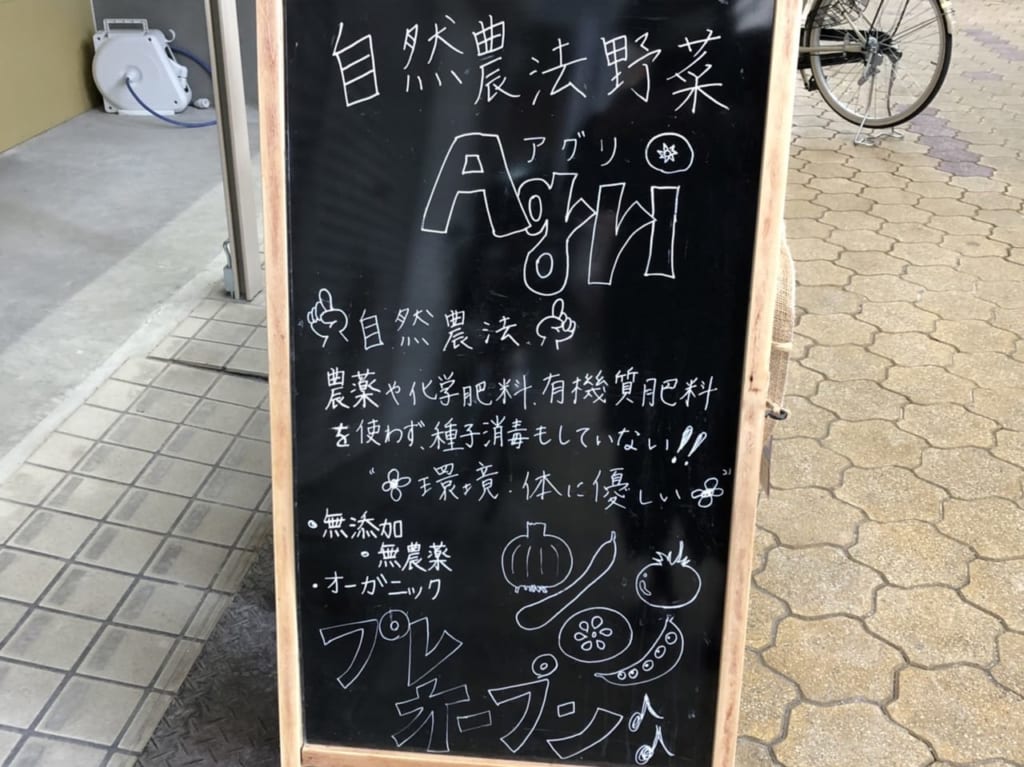 自然農法野菜
アグリ
Agri
自然農法
農薬や化学肥料、有機質肥料
を使わず、種子消毒もしていない!!
"環境・体に優しい"
・無添加
・無農薬
・オーガニック
プレ
オープン♪